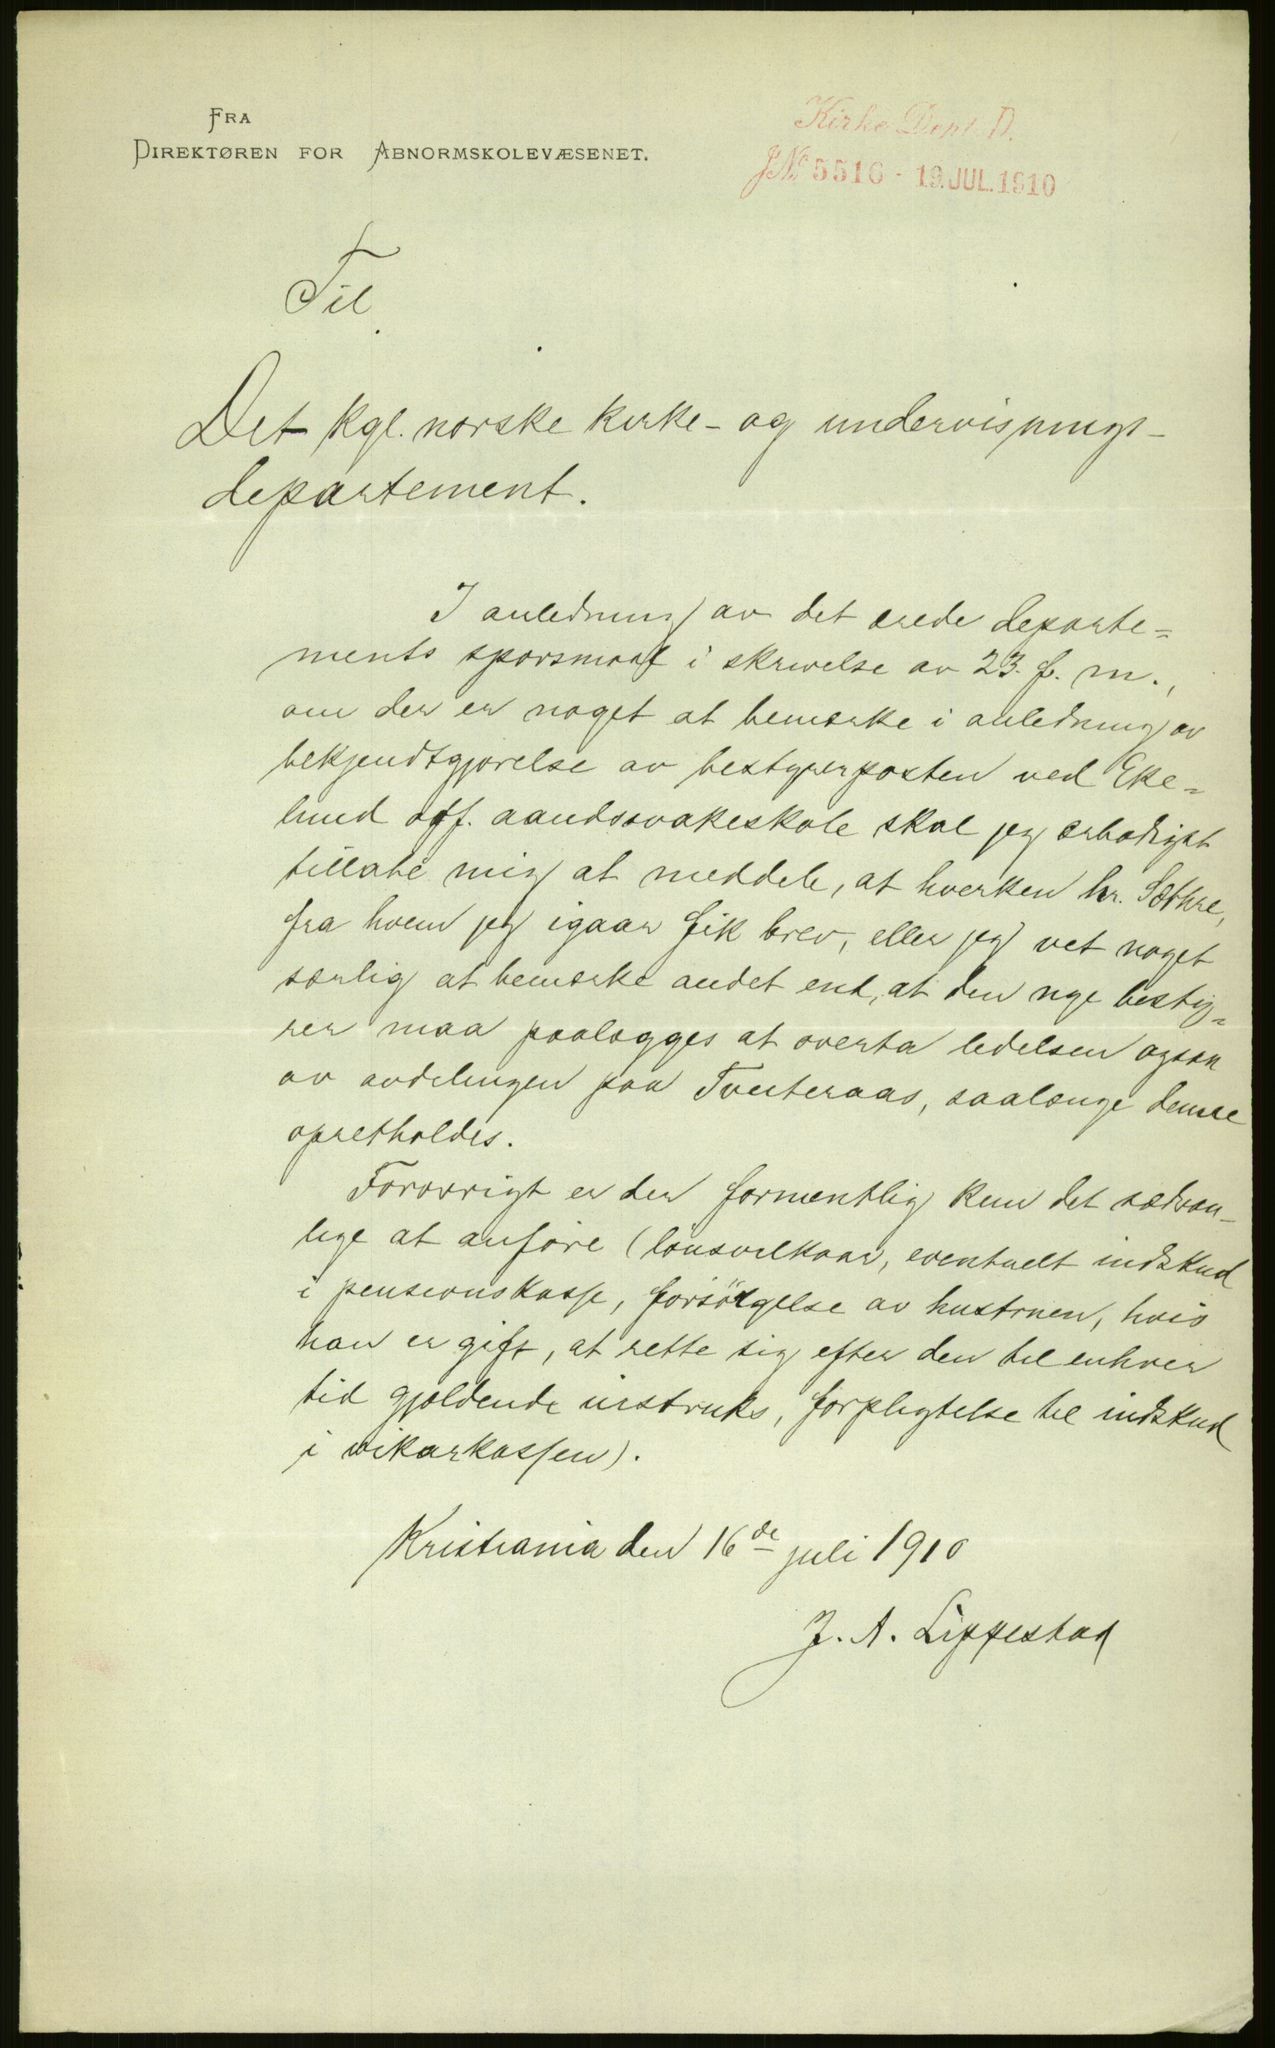 FRA
DIREKTØREN FOR ABNORMSKOLEVÆSENET.
Kirke Dept. D.
JNo 5516 - 19.JUL.1910
Til
Det kgl. norske kirke- og undervisnings-
departement.
I anledning av det ærede departe=
ments spørsmaal i skrivelse av 23. f. m.,
om der er noget at bemerke i anledning av
bekjendtgjørelse av bestyrerposten ved Eke=
lund off. aandssvakeskole skal jeg ærbødigst
tillate mig at meddele, at hverken hr. Sæthre,
fra hvem jeg igaar fik brev, eller jeg vet noget
særlig at bemærke andet end, at den nye besty=
rer maa paalægges at overta ledelsen ogsaa
av avdelingen paa Tveiteraas, saalænge denne
opretholdes.
Forøvrigt er der formentlig kun det sædvan-
lige at anføre (lønsvilkaar, eventuelt indskud
i pensionskasse, forsørgelse av hustruen, hvis
han er gift, at rette sig efter den til enhver
tid gjældende instruks, forpligtelse til indskud
i vikarkassen).
Kristiania den 16de juli 1910
J. A. Lippestad